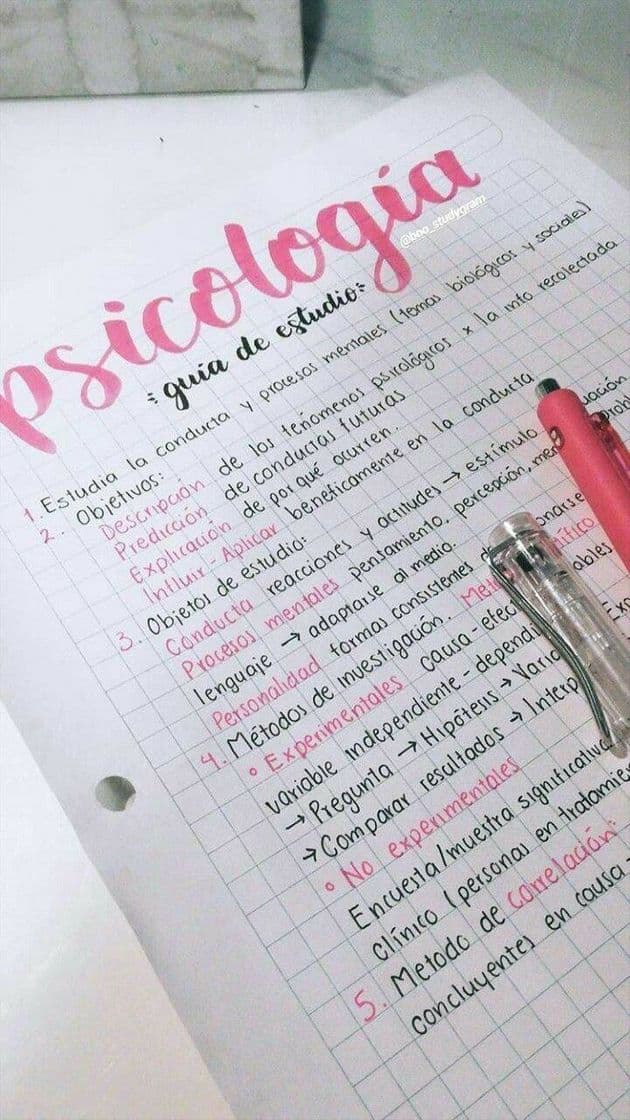 psicología
@boo_studygram
guía de estudio
1. Estudia la conducta y procesos mentales (temas biológicos y sociales)
2. Objetivos:
Descripción de los fenómenos psicológicos x la info recolectada
Predicción de conductas futuras
Explicación de por qué ocurren.
Influir-Aplicar benéficamente en la conducta
3. Objetos de estudio:
Conducta reacciones y actitudes → estímulo
Procesos mentales pensamiento, percepción,
lenguaje → adaptarse al medio.
Personalidad formas consistentes
4. Métodos de investigación.
° Experimentales causa
variable independiente-
→ Pregunta → Hipótesis →
→ Comparar resultados →
° No experimentales
Encuesta/muestra significativa
clínico (personas en
5. Metodo de correlación:
concluyentes en causa -